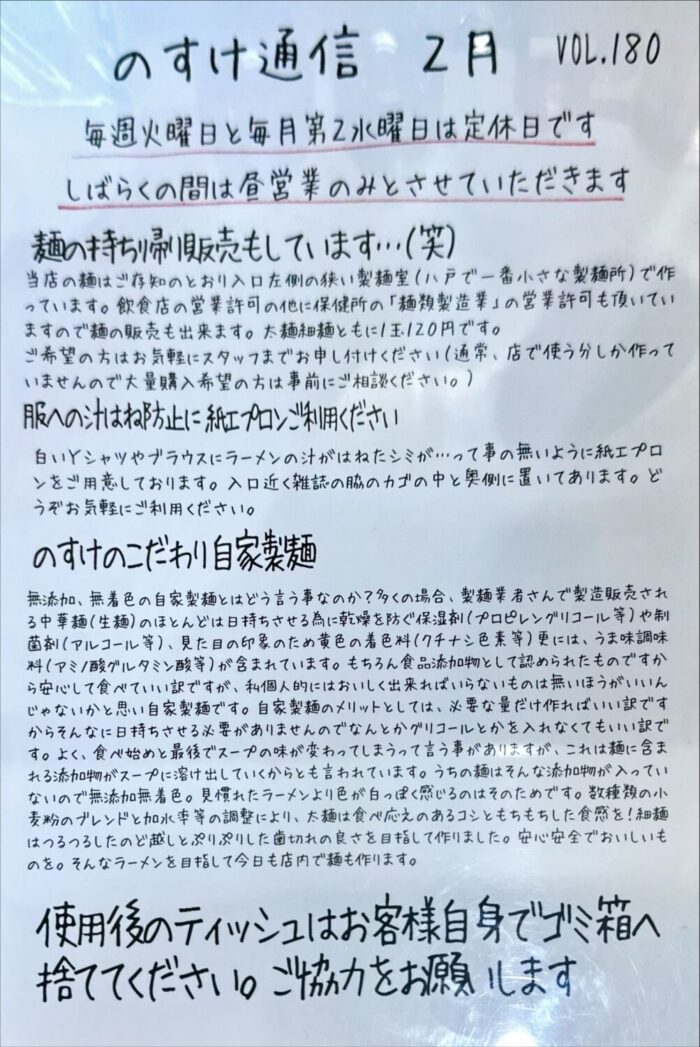 のすけ通信 2月 VOL.180
毎週火曜日と毎月第2水曜日は定休日です
しばらくの間は昼営業のみとさせていただきます
麺の持ち帰り販売もしています…(笑)
当店の麺はご存知のとおり入口左側の狭い製麺室(八戸で一番小さな製麺所)で作
っています。飲食店の営業許可の他に保健所の「麺類製造業」の営業許可も頂いてい
ますので麺の販売も出来ます。太麺細麺ともに1玉120円です。
ご希望の方はお気軽にスタッフまでお申し付けください(通常、店で使う分しか作って
いませんので大量購入希望の方は事前にご相談ください。)
服への汁はね防止に紙エプロンご利用ください
白いYシャツやブラウスにラーメンの汁がはねたシミが…って事の無いように紙エプロ
ンをご用意しております。入口近く雑誌の脇のカゴの中と奥側に置いてあります。ど
うぞお気軽にご利用ください。
のすけのこだわり自家製麺
無添加、無着色の自家製麺とはどう言う事なのか?多くの場合、製麺業者さんで製造販売され
る中華麺(生麺)のほとんどは日持ちさせる為に乾燥を防ぐ保湿剤(プロピレングリコール等)や制
菌剤(アルコール等)、見た目の印象のため黄色の着色料(クチナシ色素等)更には、うま味調味
料(アミノ酸グルタミン酸等)が含まれています。もちろん食品添加物として認められたものですか
ら安心して食べていい訳ですが、私個人的にはおいしく出来ればいらないものは無いほうがいいん
じゃないかと思い自家製麺です。自家製麺のメリットとしては、必要な量だけ作ればいい訳です
からそんなに日持ちさせる必要がありませんのでなんとかグリコールとかを入れなくてもいい訳で
す。よく、食べ始めと最後でスープの味が変わってしまうって言う事がありますが、これは麺に含ま
れる添加物がスープに溶け出していくからとも言われています。うちの麺はそんな添加物が入ってい
ないので無添加無着色。見慣れたラーメンより色が白っぽく感じるのはそのためです。数種類の小
麦粉のブレンドと加水率等の調整により、太麺は食べ応えのあるコシともちもちした食感を!細麺
はつるつるしたのど越しとぷりぷりした歯切れの良さを目指して作りました。安心安全でおいしいも
のを。そんなラーメンを目指して今日も店内で麺も作ります。
使用後のティッシュはお客様自身でゴミ箱へ
捨ててください。ご協力をお願いします